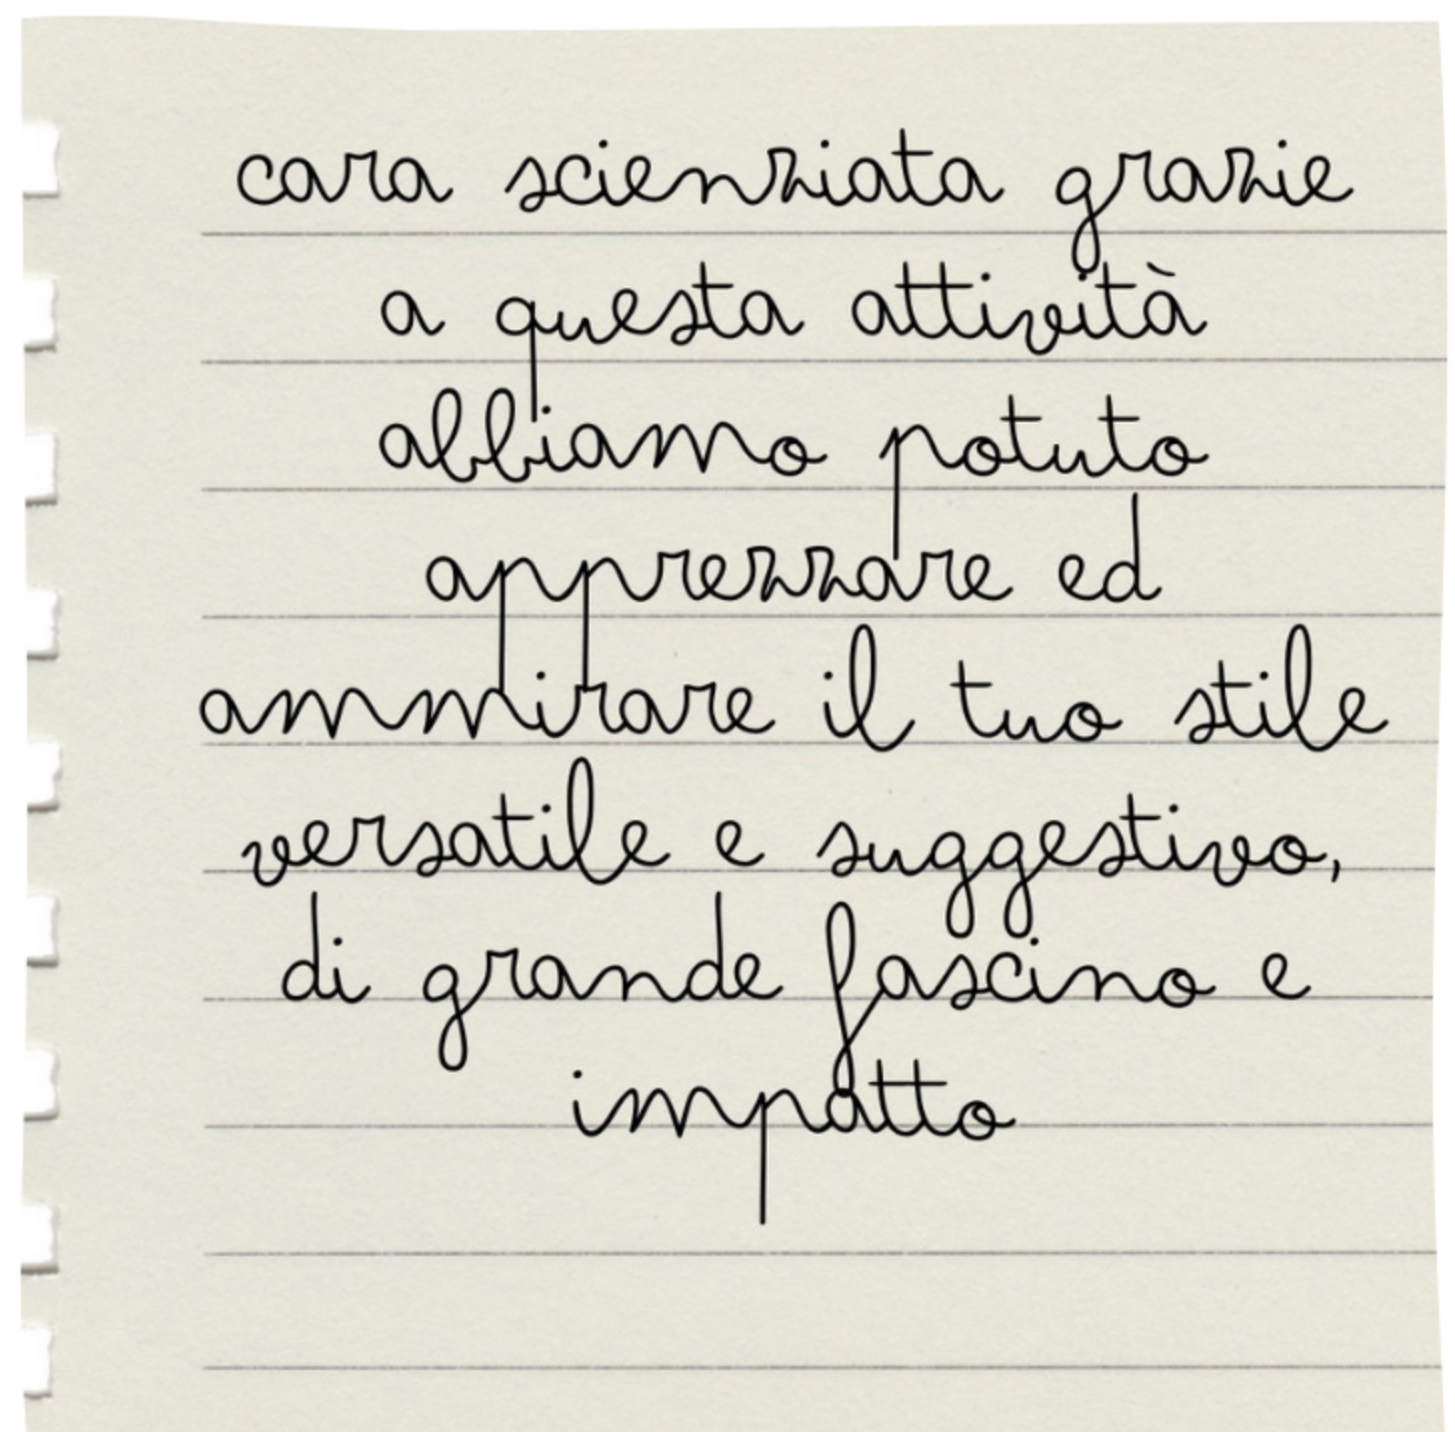 cara scienziata grazie
a questa attività
abbiamo potuto
apprezzare ed
ammirare il tuo stile
versatile e suggestivo,
di grande fascino e
impatto